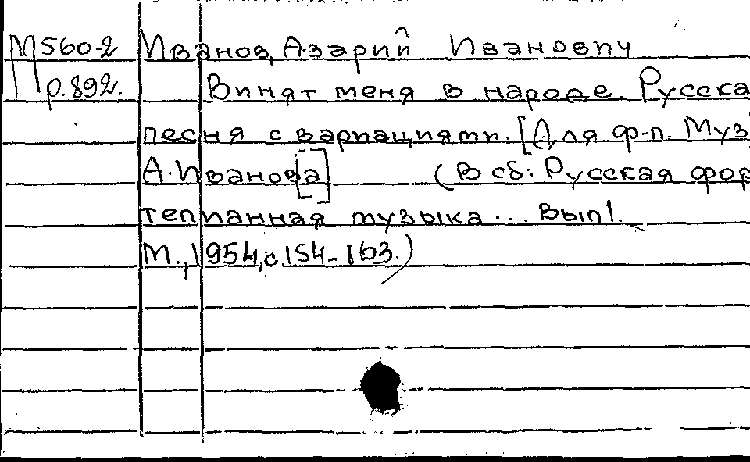 М560-2 Иванов, Азарий Иванович
р.892. Винят меня в народе. Русска
песня с вариациями. [Для ф-п. Муз
А. Иванов[а]] (В сб: Русская фор
тепианная музыка... Вып 1.
М., 1954, с. 154-163.)